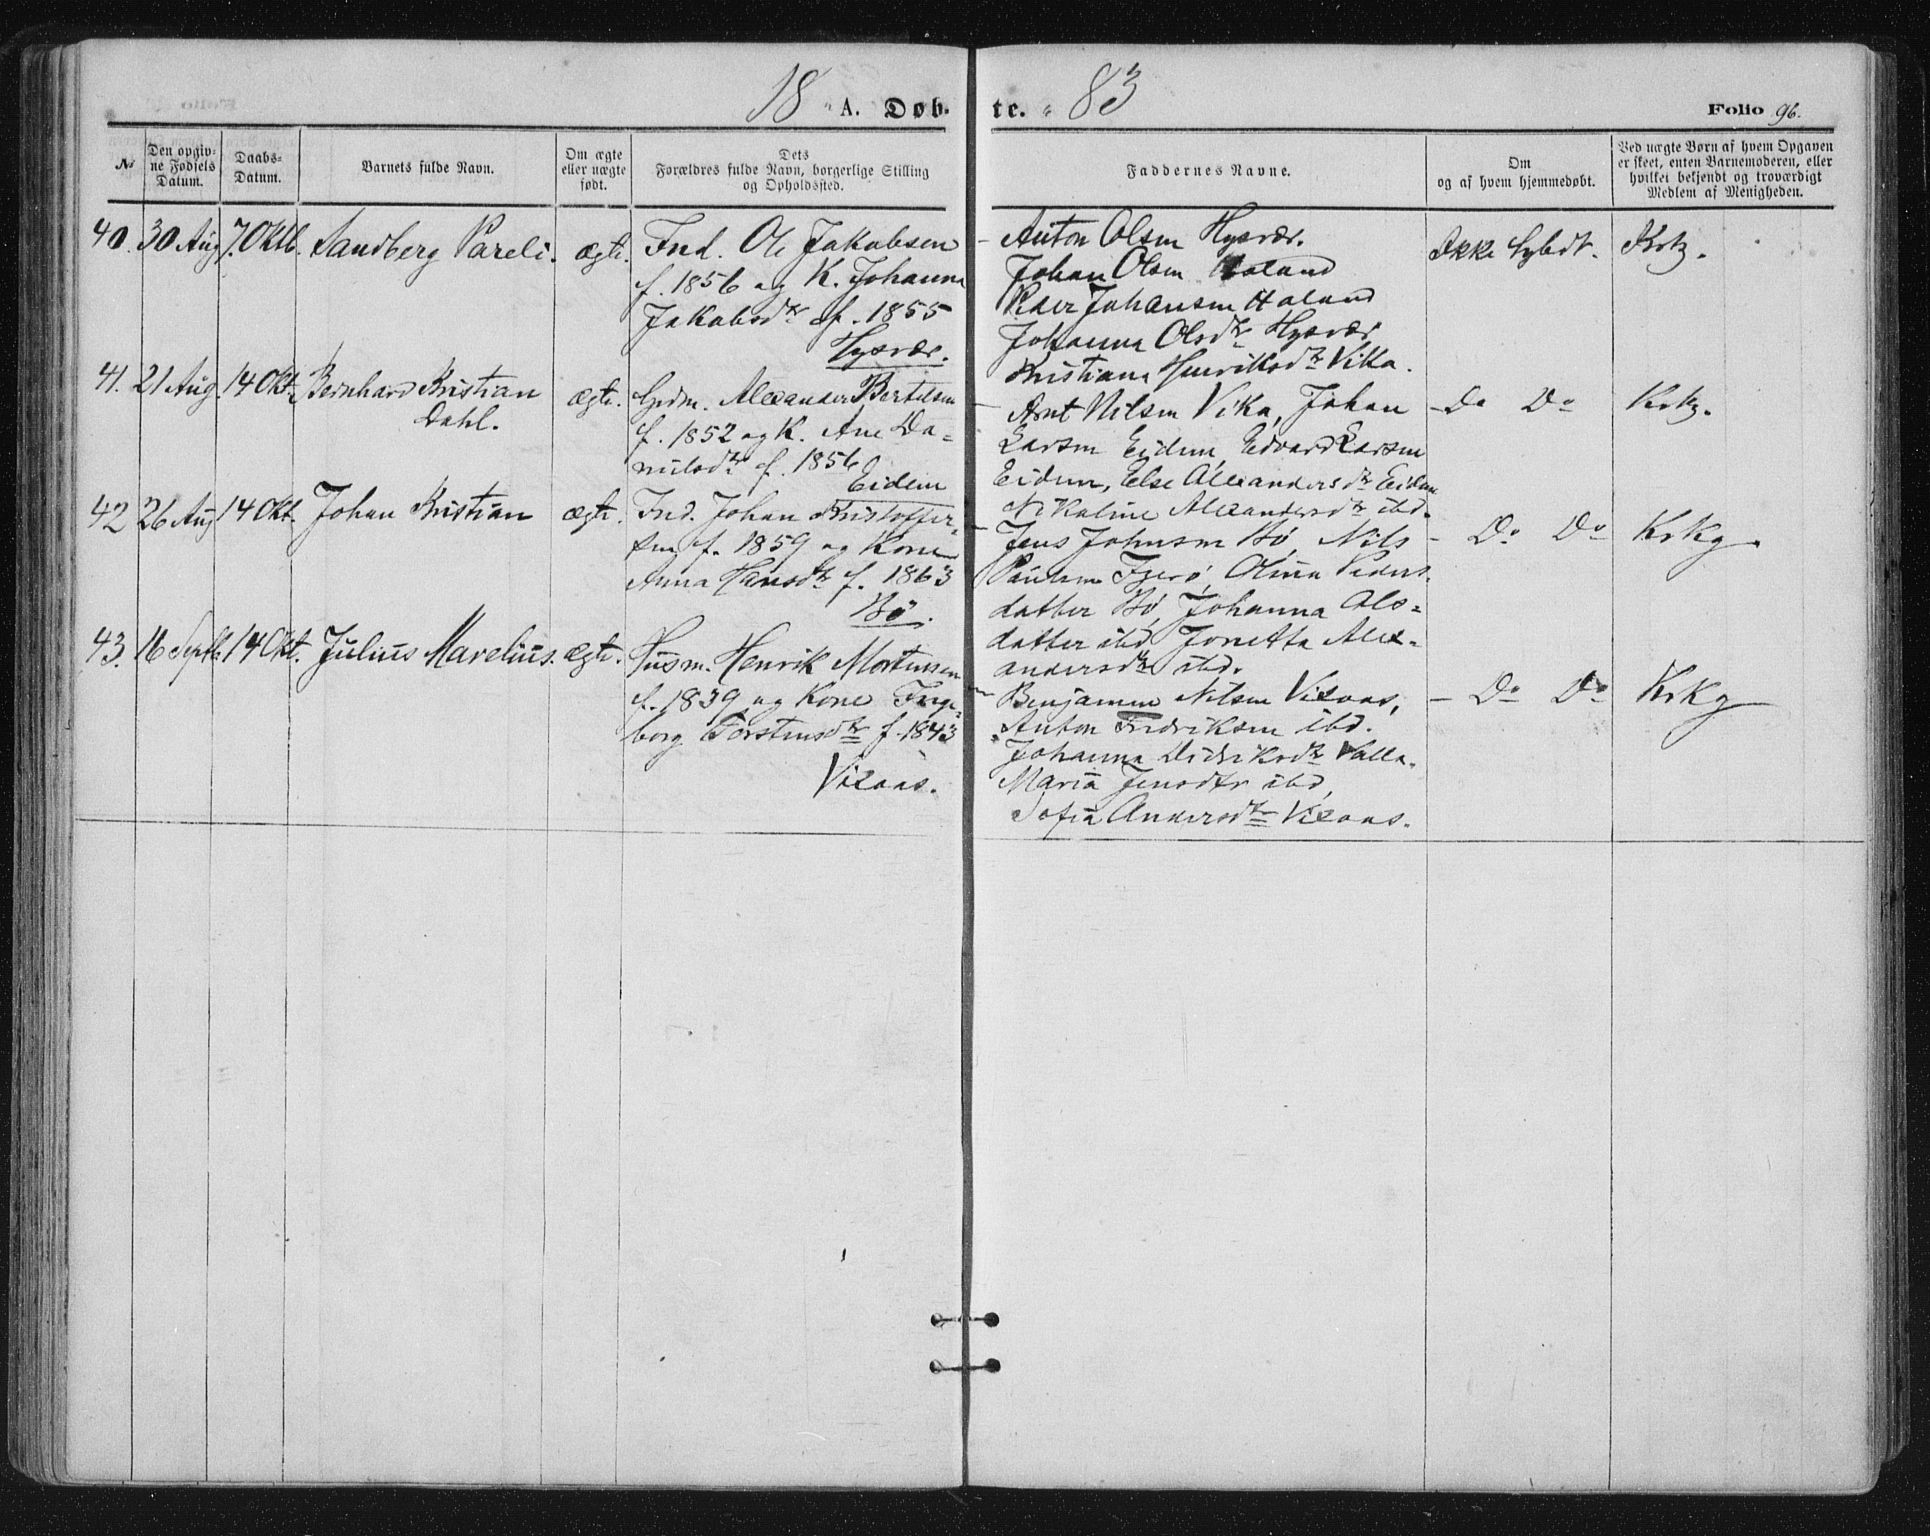 18 A. Døb- te. 83
Folio 96.
№
Den opgiv-
ne Fødsels
Datum.
Daabs-
Datum.
Barnets fulde Navn.
Om ægte
eller uægte
født.
Dets
Forældres fulde Navn, borgerlige Stilling
og Opholdssted.
Faddernes Navne.
Om
og af hvem hjemmedøbt.
Ved uægte Børn af hvem Opgaven
er skeet, enten Barnemoderen, eller
hvilket bekjendt og troværdigt
Medlem af Menigheden.
40. 30 Aug 7. Oktb. Sandberg Pareli. ægte.
Ind. Ole Jakobsen
f. 1856 og K. Johanna
Jakobsdtr f. 1855
Hysvær.
Anton Olsen Hysvær.
Johan Olsen Haland
Peder Johansen Haland
Johanna Olsdtr Hysvær
Kristiana Henriksdtr Vika.
Ikke
41. 21 Aug. 14 Okt. Bernhard Kristian
Dahl.
ægte.
Grdm. Alexander Bertelsen
f. 1852 og K. Ane Da-
nielsdtr f. 1856
Eidem
Arnt Nilsen Vika, Johan
Larsen Eidem, Edvard Larsen
Eidem, Else Alexandersdtr Eidem
Nikoline Alexandersdtr ibd.
- Do Do
42 26 Aug 14 Okt. Johan Kristian ægte.
Ind. Johan Kristoffer-
sen f. 1859 og Kone
Anna Hansdtr f. 1863
Bö.
Jens Johnsen Bö, Nils
Paulsen Igerö, Olina Peders-
datter Bö, Johanna Ols-
datter ibd, Jonetta Alex-
andersdtr ibd.
- Do Do KrKg.
43. 16 Septb. 14 Okt. Julius Marelius. ægte.
Husm. Henrik Mortensen
f. 1839 og Kone Inge-
borg Torstensdtr f. 1843
Visaas.
Benjamin Nilsen Visaas,
Anton Fredriksen ibd.
Johanna Didriksdtr Valla.
Maria Jensdtr ibd,
Sofia Andersdtr Visaas.
- Do Do KrKg